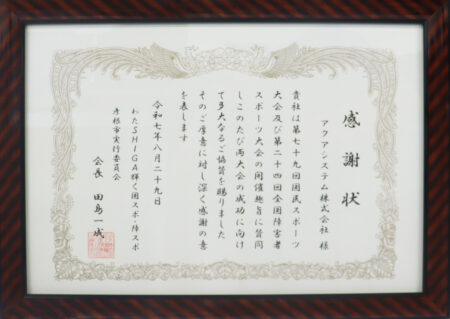 感謝状
アクアシステム株式会社 様
貴社は第七十九回国民スポーツ
大会及び第二十四回全国障害者
スポーツ大会の開催趣旨に賛同
しこのたび両大会の成功に向け
て多大なるご協賛を賜りました
そのご厚意に対し深く感謝の意
を表します
令和七年八月二十九日
わたSHIGA輝く国スポ・障スポ
彦根市実行委員会
会長 田島一成